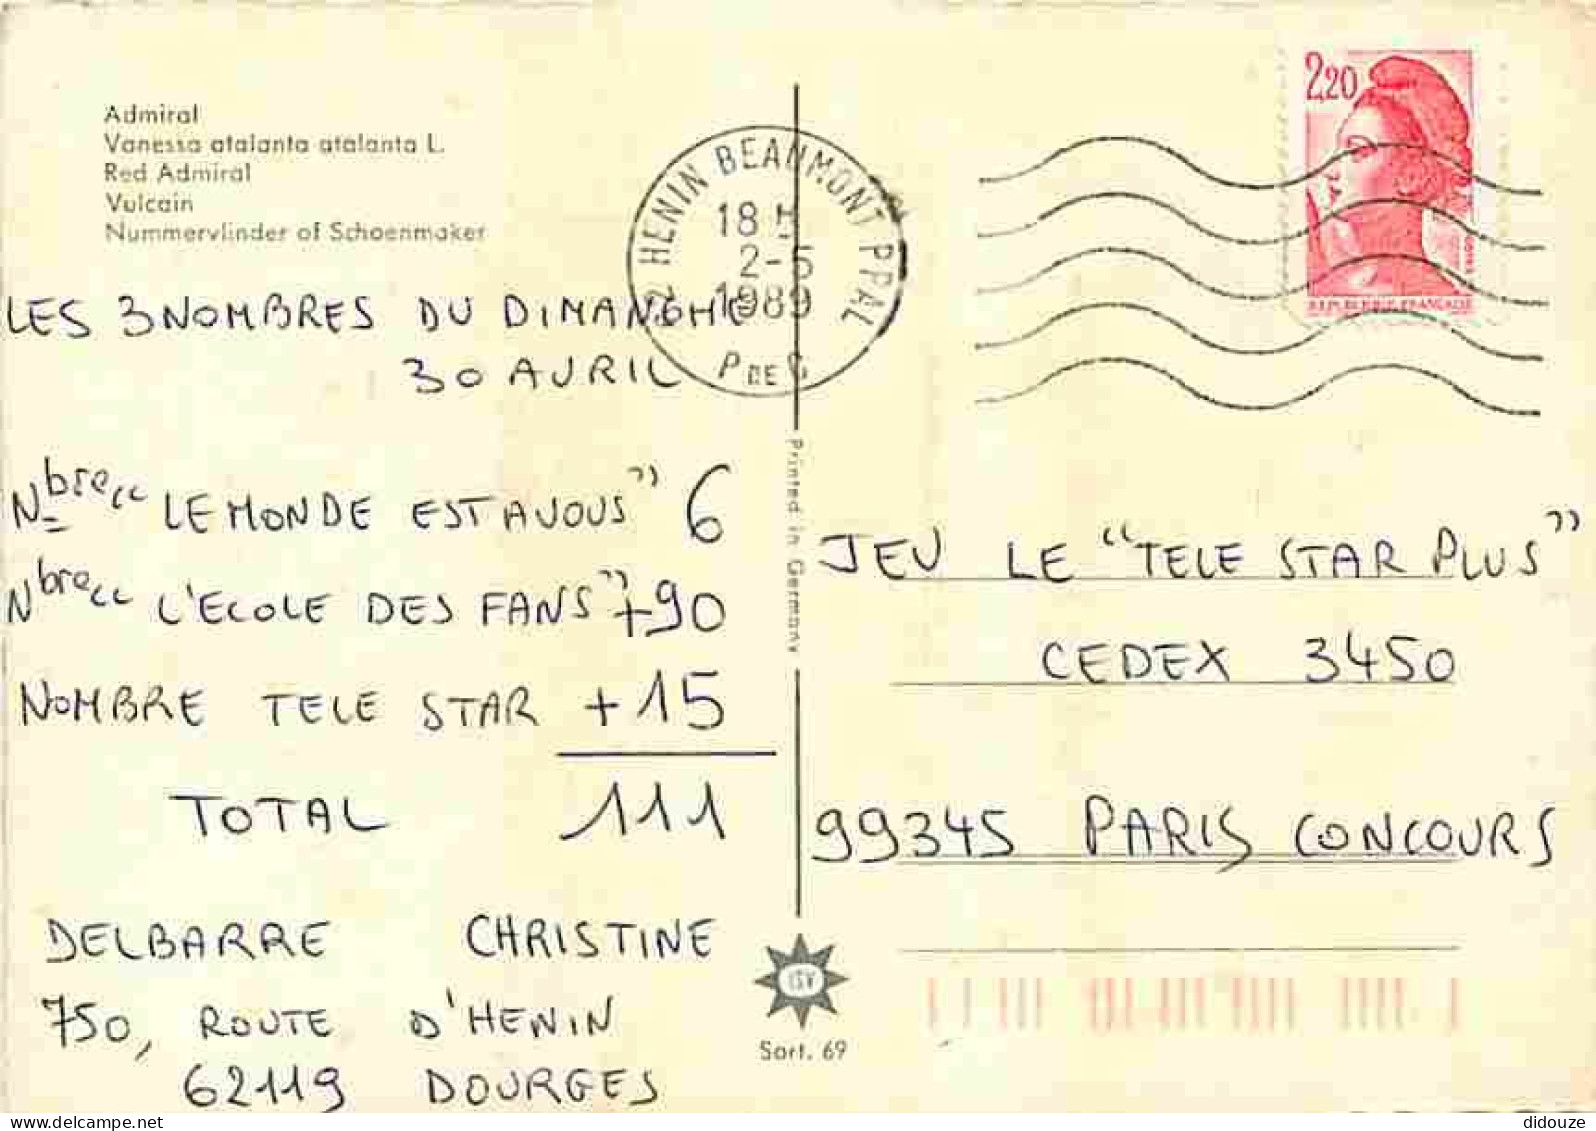 Admiral
Vanessa atalanta atalanta L.
Red Admiral
Vulcain
Nummervlinder of Schoenmaker
HENIN BEAUMONT PPAL
18 H
2-5
1989
P DE C
2,20
REPUBLIQUE FRANÇAISE
LES 3 NOMBRES DU DIMANCHE
30 AVRIL
Nbre “ LE MONDE EST A VOUS ” 6
Nbre “ L'ECOLE DES FANS ” +90
NOMBRE TELE STAR +15
TOTAL 111
DELBARRE CHRISTINE
750, ROUTE D'HENIN
62119 DOURGES
Printed in Germany
ISV
Sort. 69
JEU LE “TELE STAR PLUS”
CEDEX 3450
99345 PARIS CONCOURS
didouze